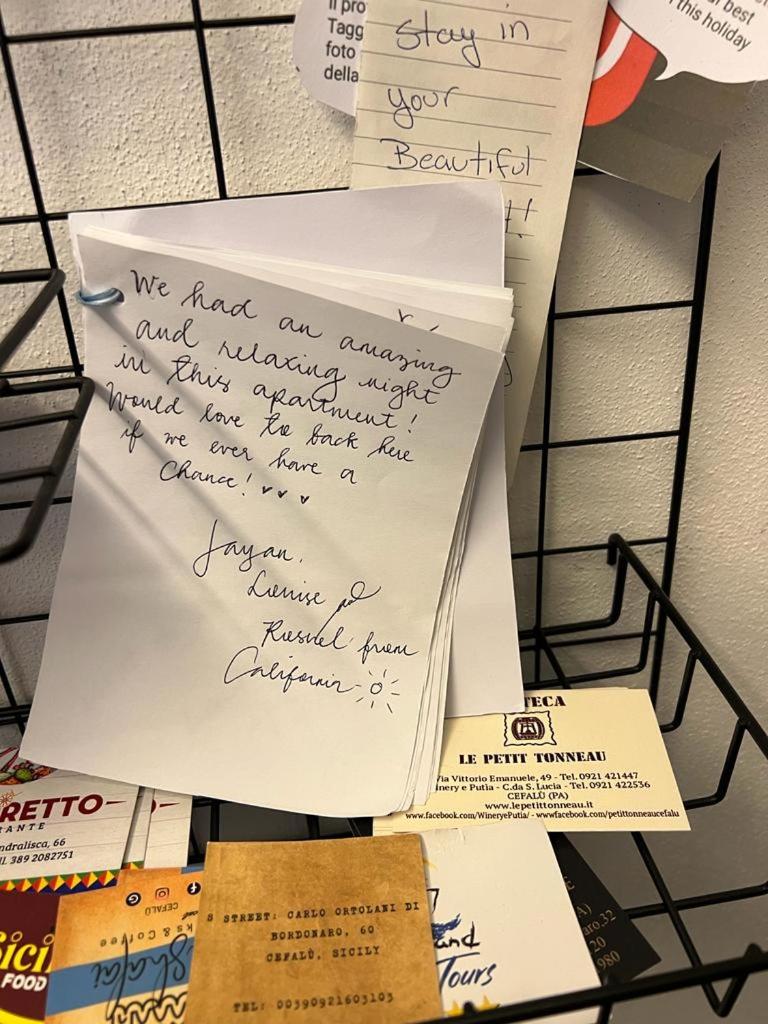 Il pro
Tagg
foto
della
stay in
your
Beautiful
best
this holiday
We had an amazing
and relaxing night
in this apartment!
Would love to back here
if we ever have a
Chance!
Jayan,
Louise
from
California
TECA
LE PETIT TONNEAU
Via Vittorio Emanuele, 49 - Tel. 0921 421447
inery e Putia - C.da S. Lucia - Tel. 0921 422536
CEFALÙ (PA)
www.lepetittonneau.it
www.facebook.com/WineryePutia/ - wwwfacebook.com/petittonneaucefalu
RETTO
RANTE
ndralisca, 66
ll. 389 2082751
CEFALÙ
ks&Coffee
Sici
FOOD
S STREET: CARLO ORTOLANI DI
BORDONARO, 60
CEFALÙ, SICILY
TEL: 00390921603103
and
Tours
A)
aro.32
20
980